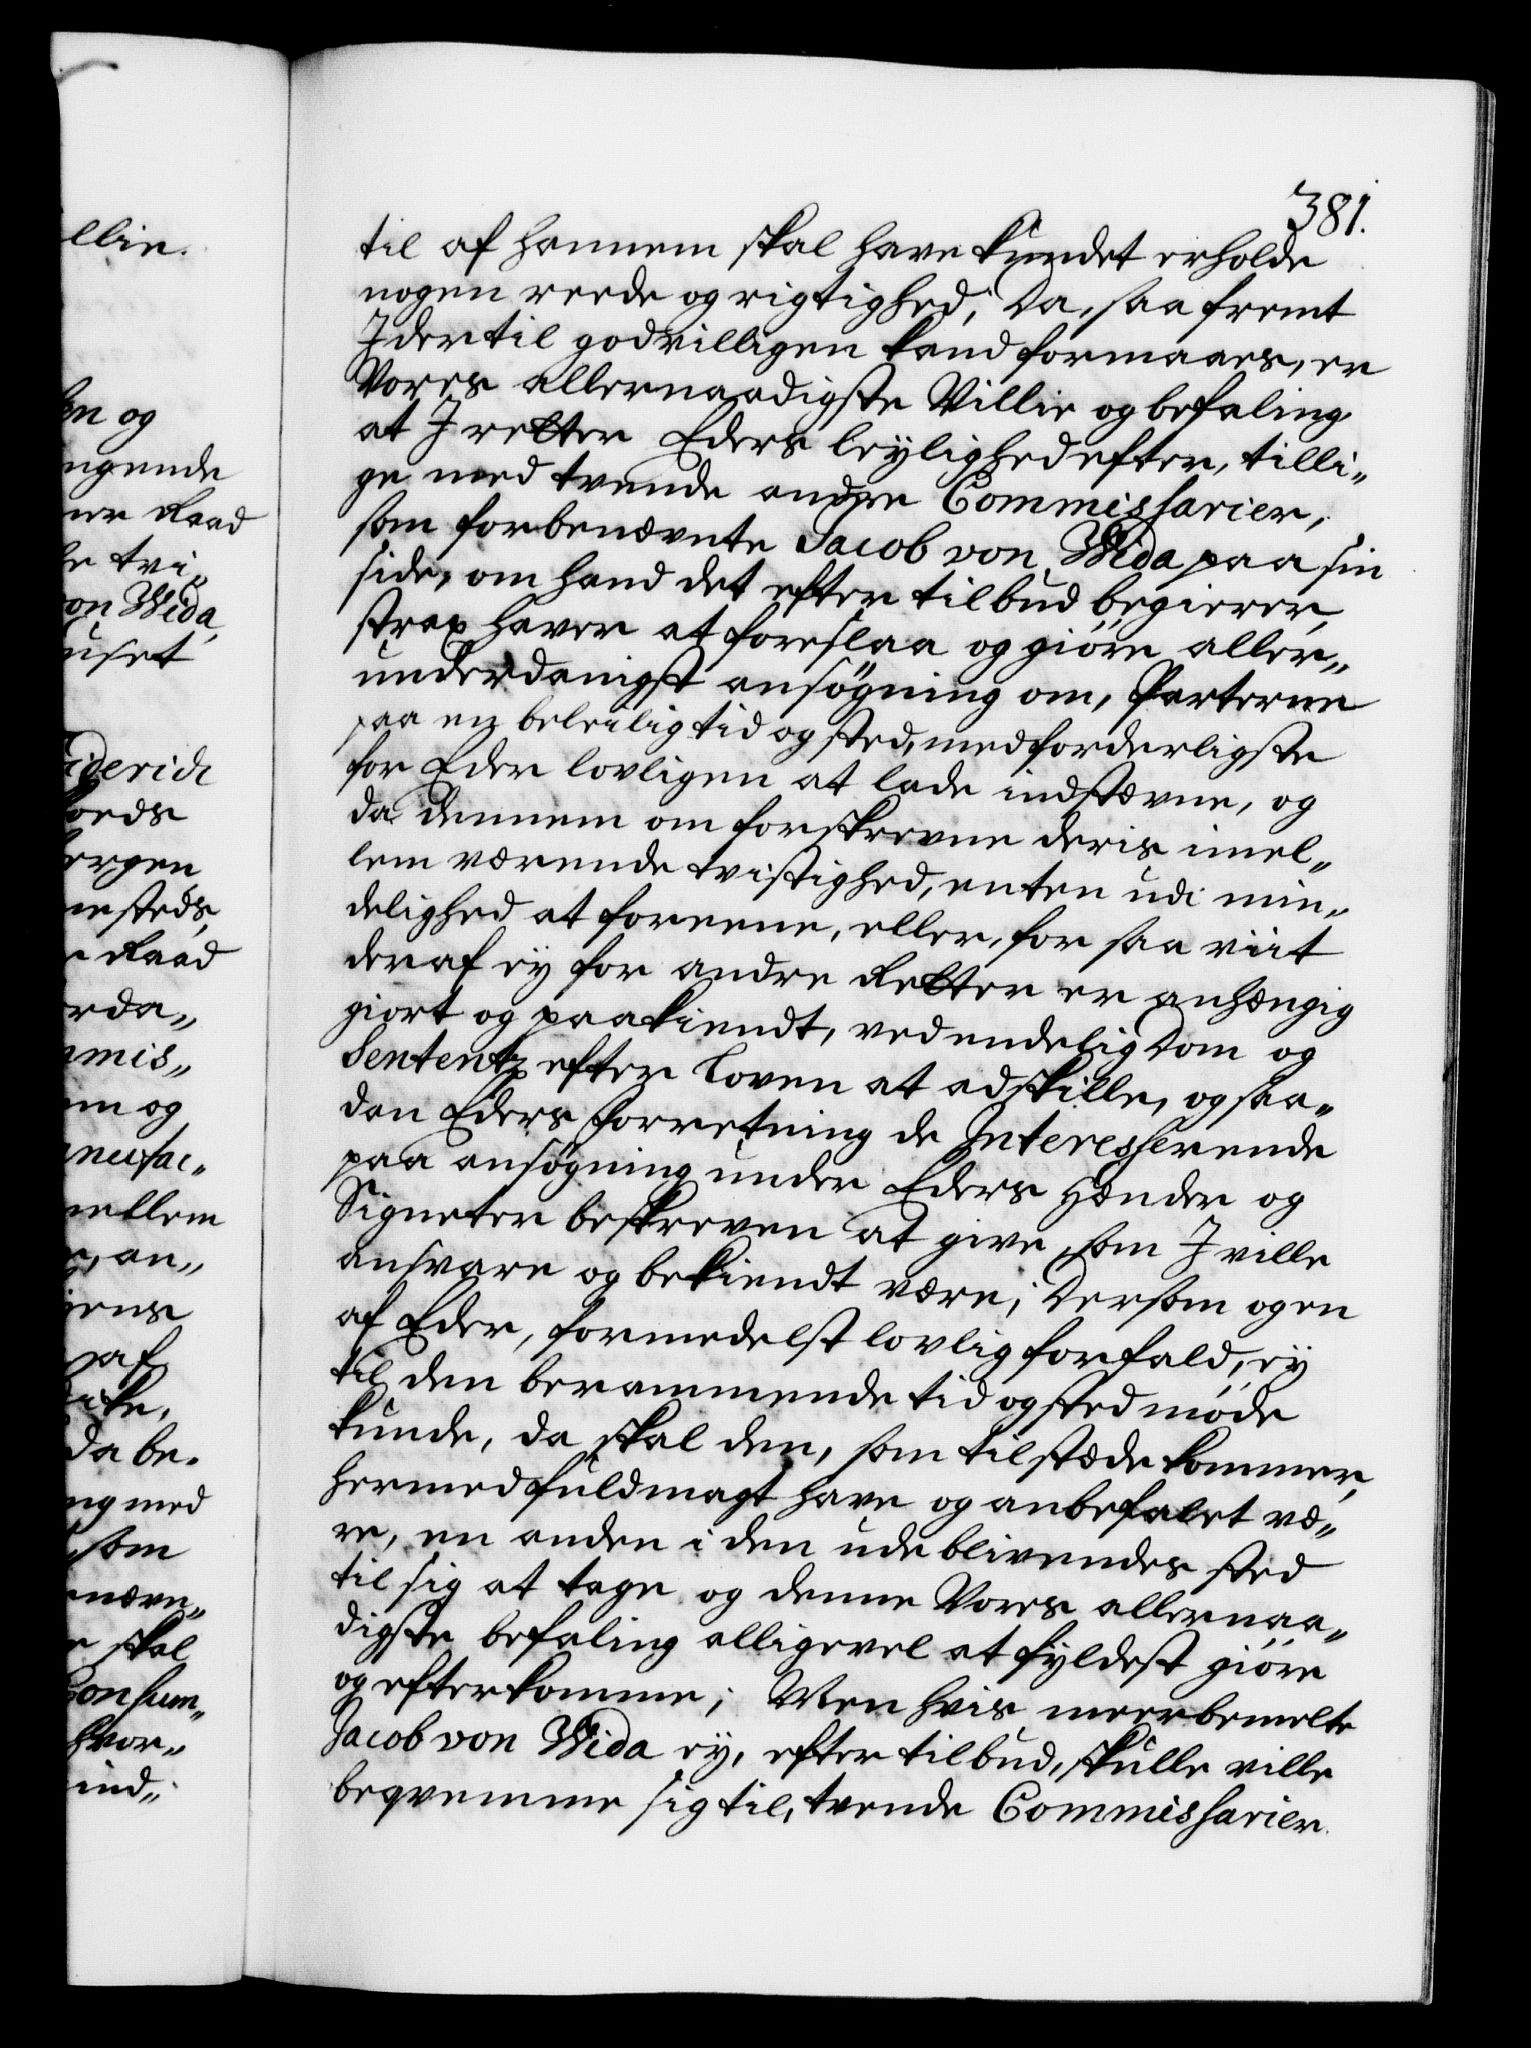 381.
til af hannem skal have kundet erholde
nogen reede og rigtighed; Da, saa fremt
I dertil godvilligen kand formaaes, er
Vores allernaadigste Villie og befaling,
at I retter Eders leylighed efter, tilli„
ge med tvende andre Commissarier,
som forbenævnte Jacob von Wida paa sin
side, om hand det efter tilbud begierer,
strax haver at foreslaa og giøre aller„
underdanigst ansøgning om, Parterne
paa en beleilig tid og sted, med forderligste
for Eder lovligen at lade indstævne, og
da dennem om forskrevne deris imel„
lem værende tvistighed, enten udi min„
delighed at foreene, eller, for saa viit
deraf ey for andre Retter er anhængig
giort og paakiendt, ved endelig Dom og
Sententz efter Loven at adskille, og saa„
dan Eders forretning de Interesserende
paa ansøgning under Eders Hænder og
Signeter beskreven at give, som I ville
ansvare og bekiendt være; Dersom og en
af Eder, formedelst lovlig forfald, ey
til den berammende tid og sted møde
kunde, da skal den, som tilstæde kommer,
hermed fuldmagt have og anbefalet væ„
re, en anden i den udeblivendes sted
til sig at tage og denne Vores allernaa„
digste befaling alligevel at fyldest giøre
og efterkomme; Men hvis meerbemelte
Jacob von Wida ey, efter tilbud, skulle ville
beqvemme sig til, tvende Commissarier
llie.
en og
ngende
er Raad
le tvi„
von Wida,
uset
iderich
oeds
ergen
nesteds,
e Raad
rda„
mmis„
em og
nufac„
mellem
e, an„
gens
af
ike,
da be.
ng med
som
nævn„
e skal
Consum„
hvor„
ind„